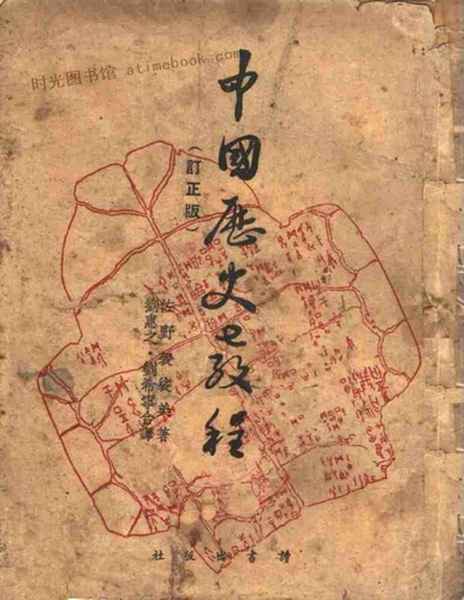 时光图书馆 atimebook.com
中國歷史教程
(訂正版)
佐野袈裟美著
劉惠之 劉希寧合譯
讀書出版社